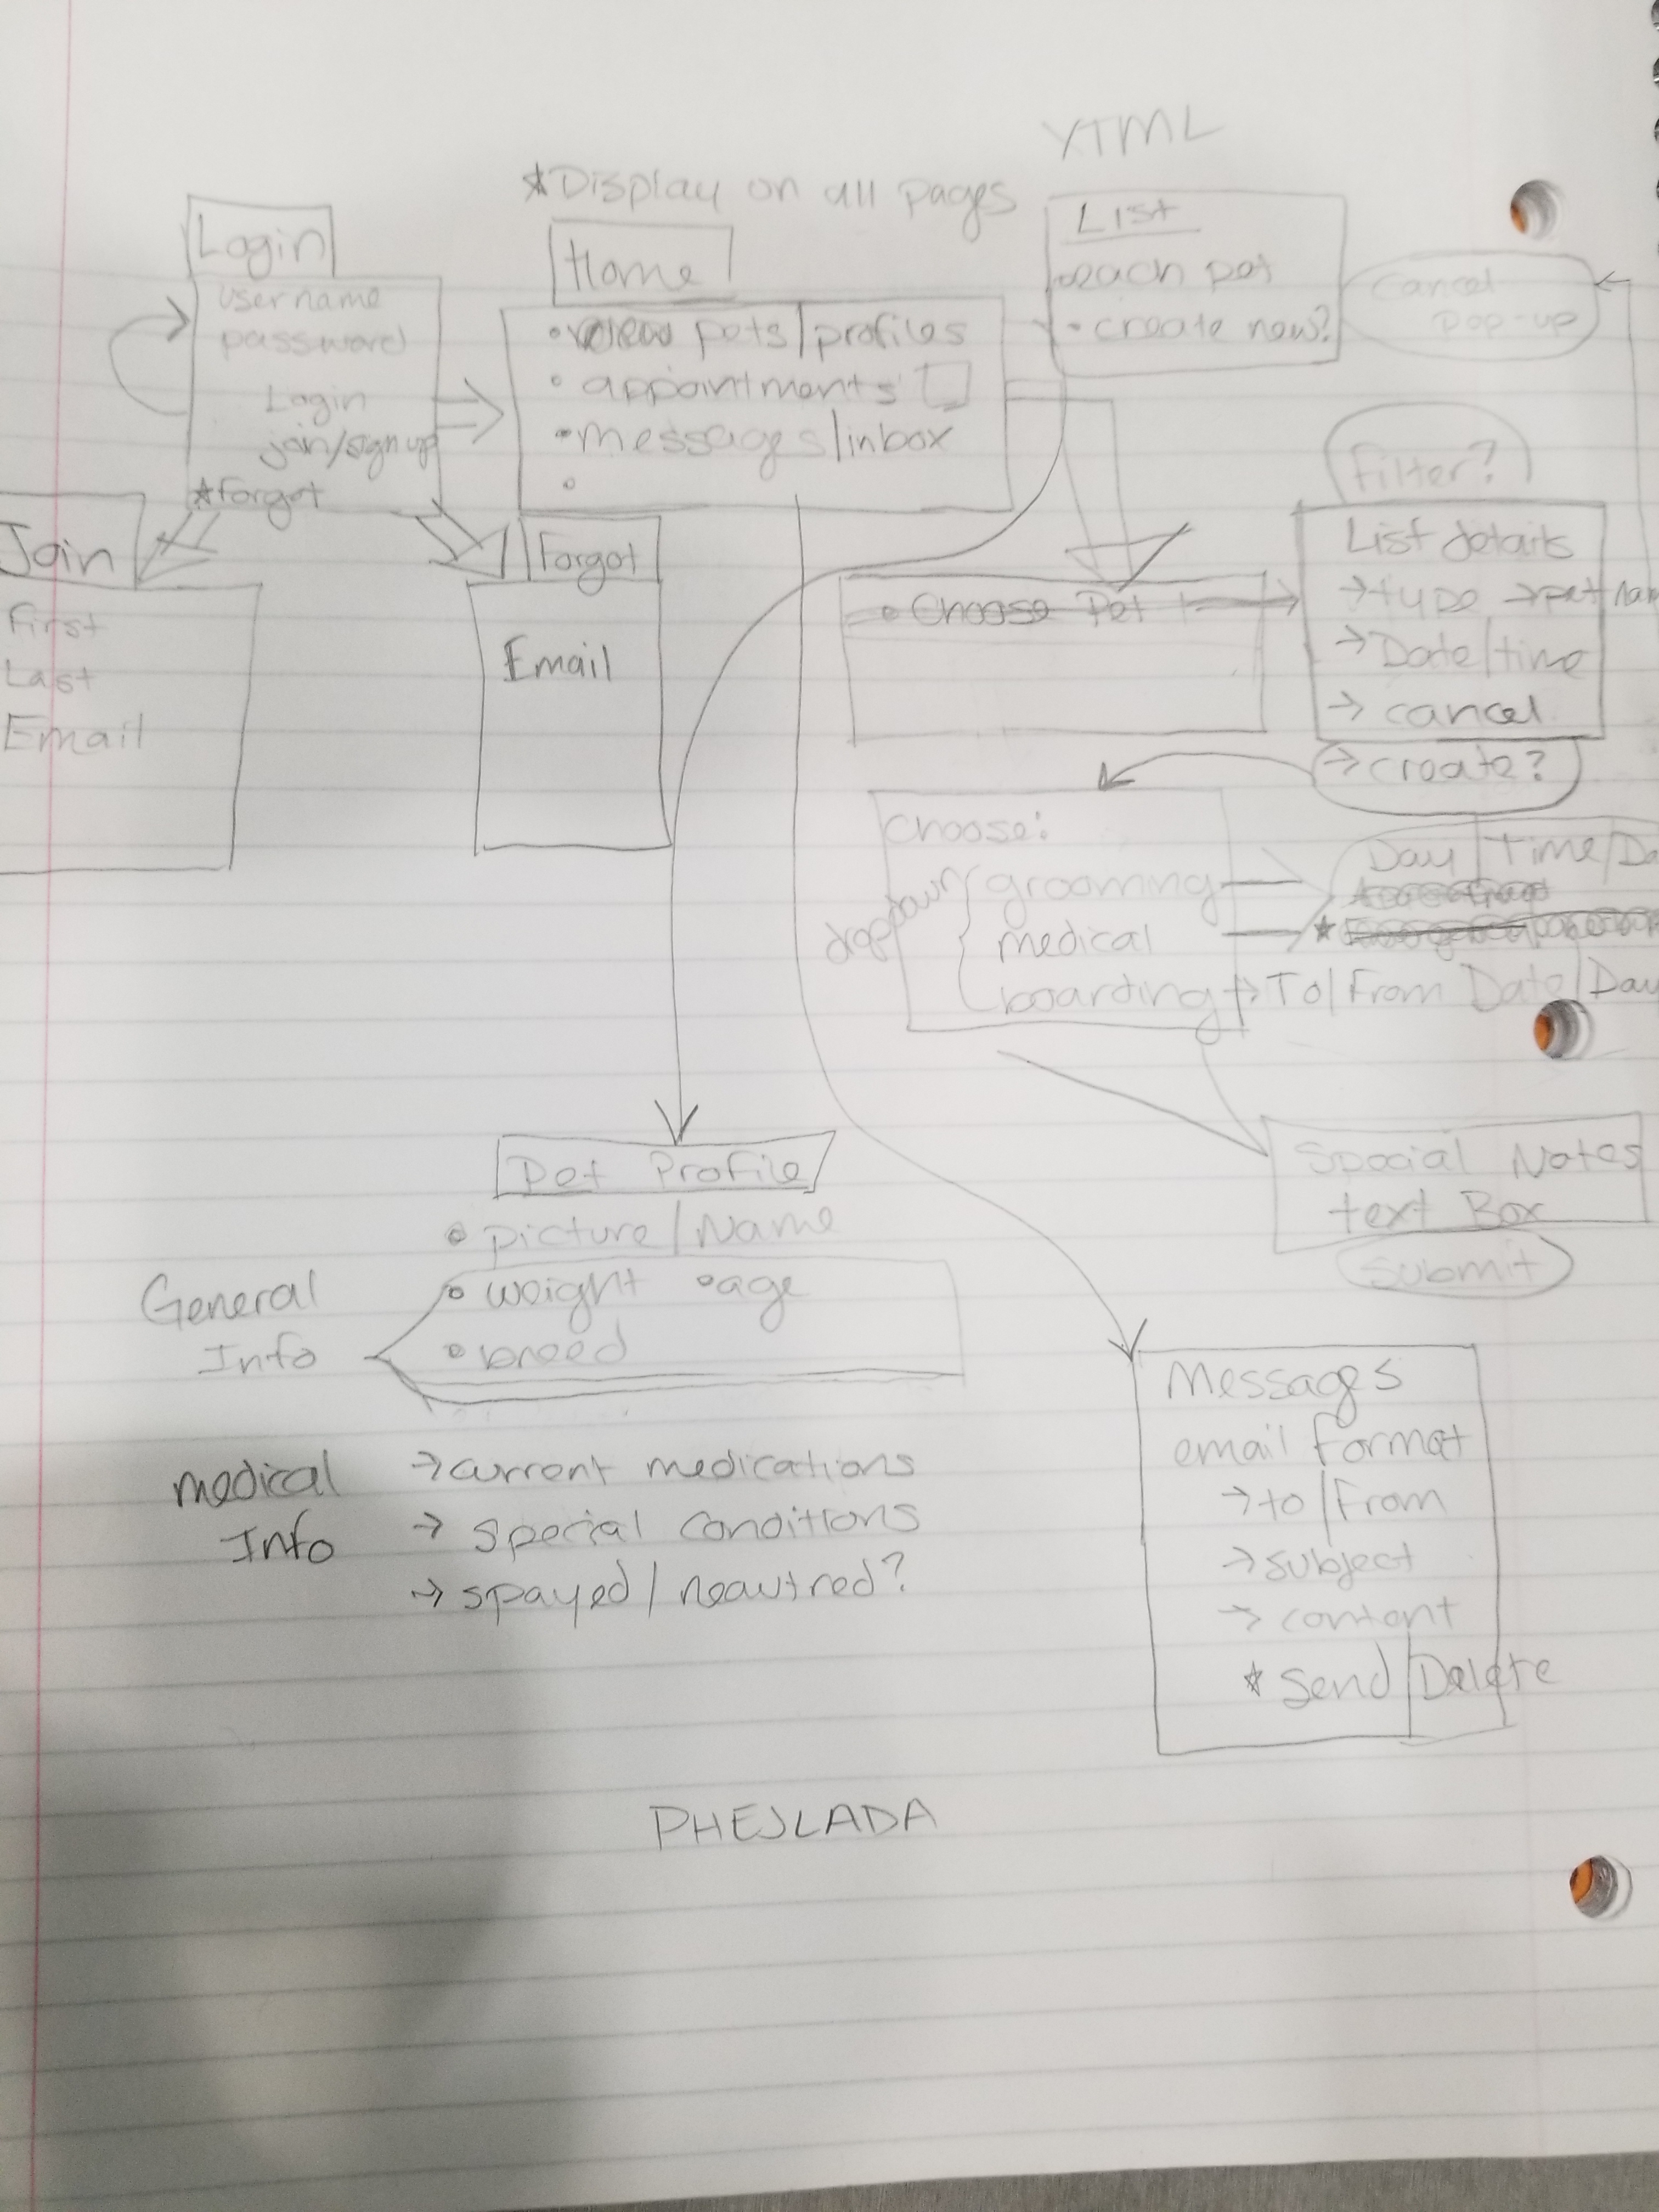 XTML
*Display on all pages
Login
username
password
Login
join/sign up
*forgot
Home
• view pets/profiles
• appointments
• messages/inbox
•
List
• each pet
• create new?
Cancel
Pop-up
Join
First
Last
Email
Forgot
Email
• Choose Pet
Filter?
List details
→ type → pet nam
→ Date/time
→ cancel
→ create?
Choose:
dropdown
grooming
medical
boarding
Day/Time/Da
*
To/From Date/Day
Special Notes
text Box
Submit
Pet Profile
• picture/Name
General
Info
• weight • age
• breed
medical
Info
→ current medications
→ special conditions
→ spayed/neautred?
Messages
email format
→ to/From
→ subject
→ content
* Send/Delete
PHEJLADA